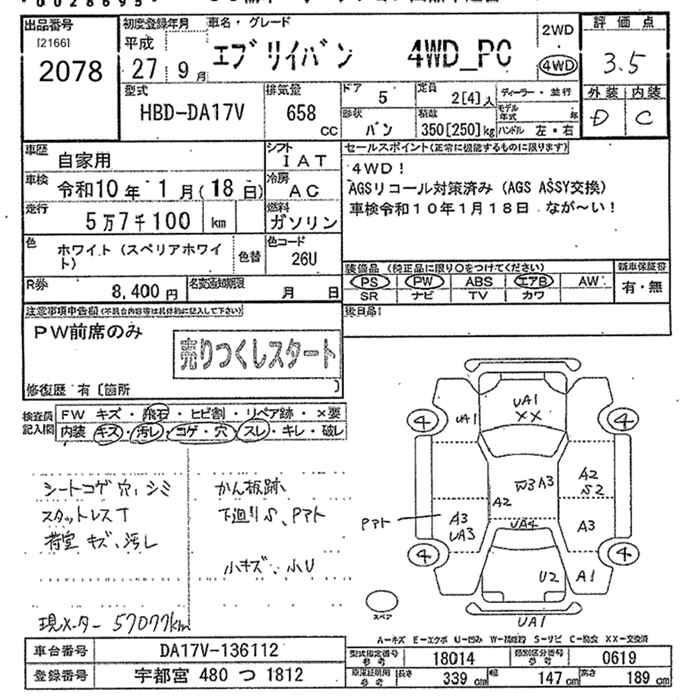 0028695
出品番号 [2166] 2078
初度登録年月 平成 27年 9月
車名・グレード エブリイバン 4WD_PC
2WD 4WD
評価点 3.5
外装 D 内装 C
型式 HBD-DA17V
排気量 658 CC
ドア 5 形状 バン
定員 2[4]人 積載 350[250]kg
ディーラー・並行 モデル年式 年 ハンドル 左・右
車歴 自家用
シフト IAT
車検 令和10年 1月(18日)
冷房 AC
走行 5万7千100 km
燃料 ガソリン
色 ホワイト(スペリアホワイト) 色替
色コード 26U
R券 8,400円 名変通知期限 月 日
セールスポイント(正常に機能するものに限ります)
4WD!
AGSリコール対策済み(AGS ASSY交換)
車検令和10年1月18日 なが~い!
装備品 (純正品に限り○をつけてください) 新車保証書
PS PW ABS エアB AW 有・無
SR ナビ TV カワ
後日品
注意事項申告欄(不具合内容等は具体的に記入して下さい)
PW前席のみ
売りつくしスタート
修復歴 有〔箇所 〕
検査員記入欄 FW キズ・飛石・ヒビ割・リペア跡・×要
内装 キズ・汚レ・コゲ・穴・スレ・キレ・破レ
シートコゲ穴、シミ かん板跡
スタットレスT 下廻りS、Pアト
荷室キズ、汚レ
小キズ、小U
現メーター 57077km
UA1 XX
UA1
4 4
A3 A2
A2 S2
Pアト A3 UA3 UA4 A3
4 4
U2 A1
スペア UA1
A-キズ E-エクボ U-凹み W-補修跡 S-サビ C-腐食 XX-交換済
車台番号 DA17V-136112
型式指定番号 参考 18014 類別区分番号 参考 0619
登録番号 宇都宮 480 つ 1812
長さ 339 cm 幅 147 cm 高さ 189 cm